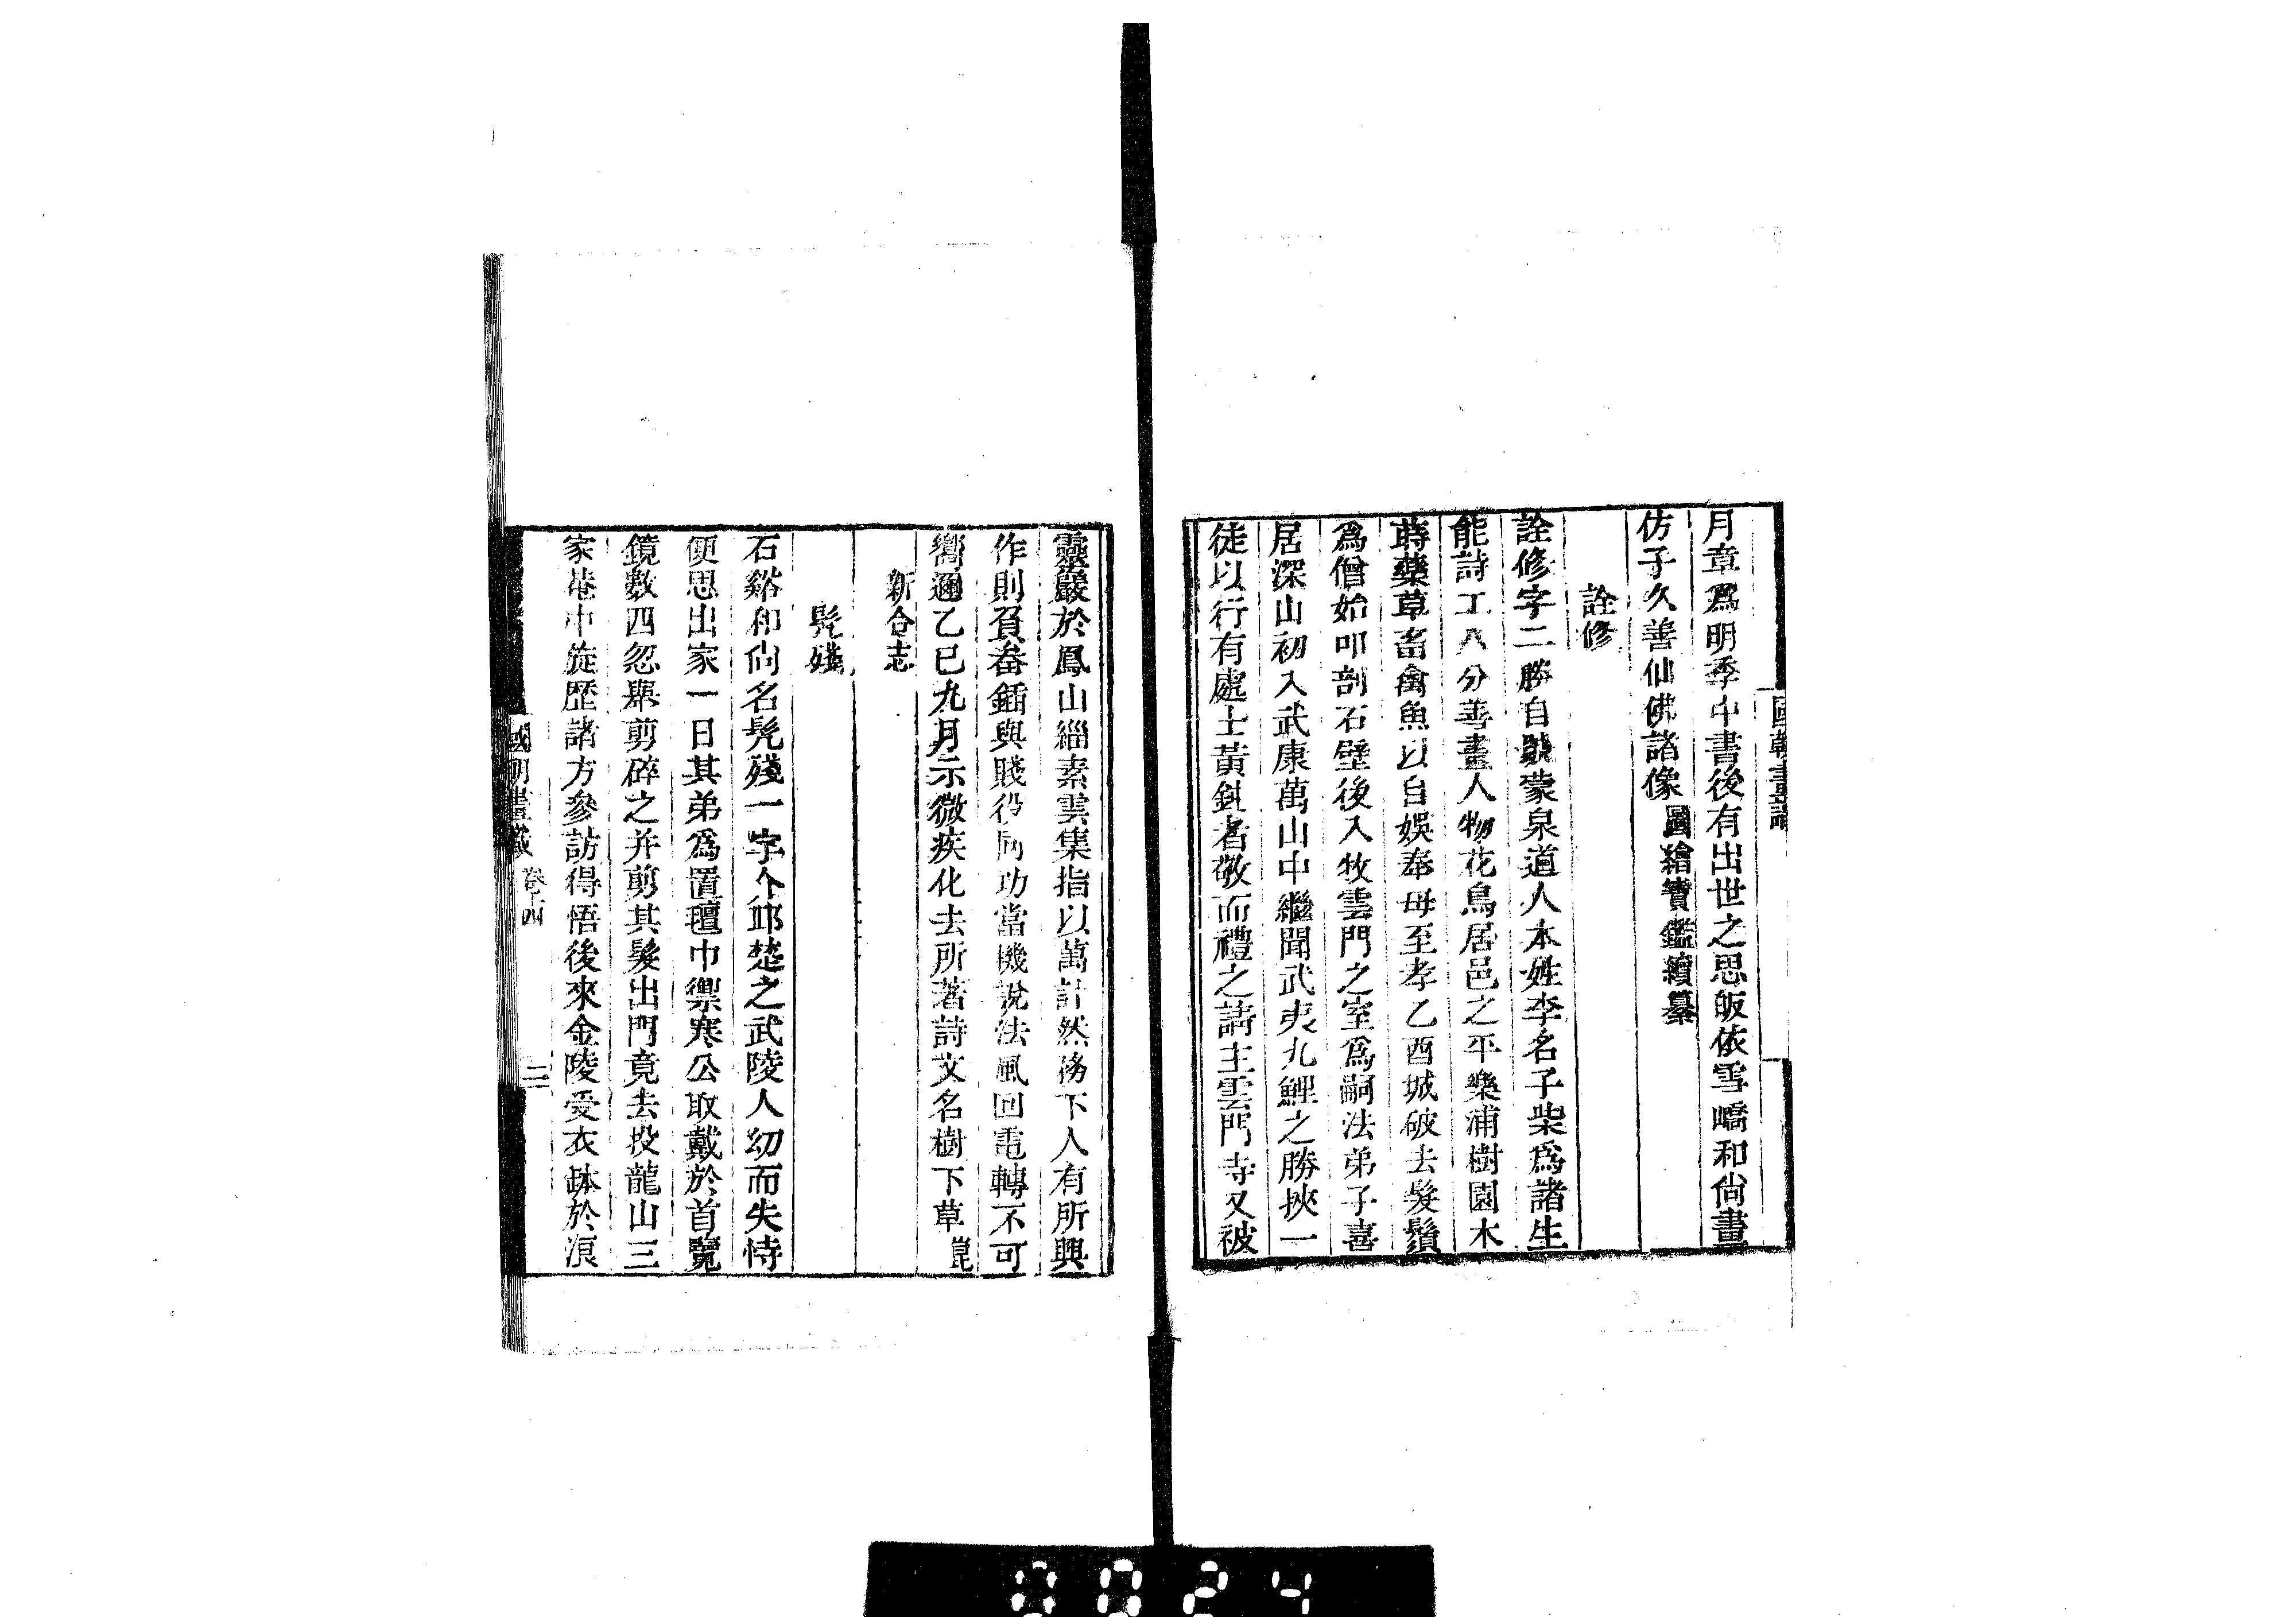 月章爲明季中書後有出世之思皈依雪嶠和尙畫
仿子久善仙佛諸像圖繪寶鑑續纂
詮修
詮修字二勝自號蒙泉道人本姓李名子柴爲諸生
能詩工八分善畫人物花鳥居邑之平樂浦樹園木
蒔藥草畜禽魚以自娛奉母至孝乙酉城破去髮鬚
爲僧始叩剖石壁後入牧雲門之室爲嗣法弟子喜
居深山初入武康萬山中繼聞武夷九鯉之勝挾一
徒以行有處士黃釴者敬而禮之請主雲門寺又被
靈巖於鳳山緇素雲集指以萬計然務下人有所興
作則負畚鍤與賤役同功當機說法風回電轉不可
嚮邇乙巳九月示微疾化去所著詩文名樹下草崑
新合志
髡殘
石谿和尙名髡殘一字介邱楚之武陵人幼而失恃
便思出家一日其弟爲置氊巾禦寒公取戴於首覽
鏡數四忽舉剪碎之并剪其髮出門竟去投龍山三
家菴中旋歷諸方參訪得悟後來金陵受衣鉢於浪
國朝畫識 卷十四 三
0024